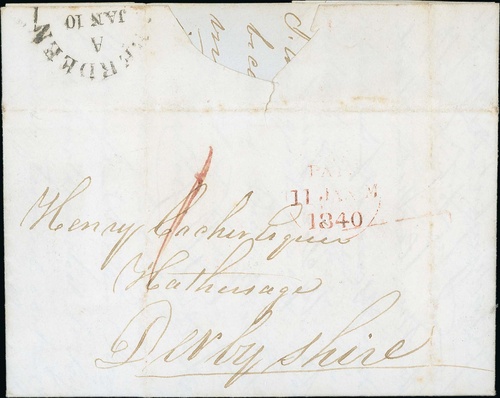 ABERDEEN
A
JAN 10
PAID
11 JAN
1840
Henry Archer Esquire
Hathersage
Derbyshire